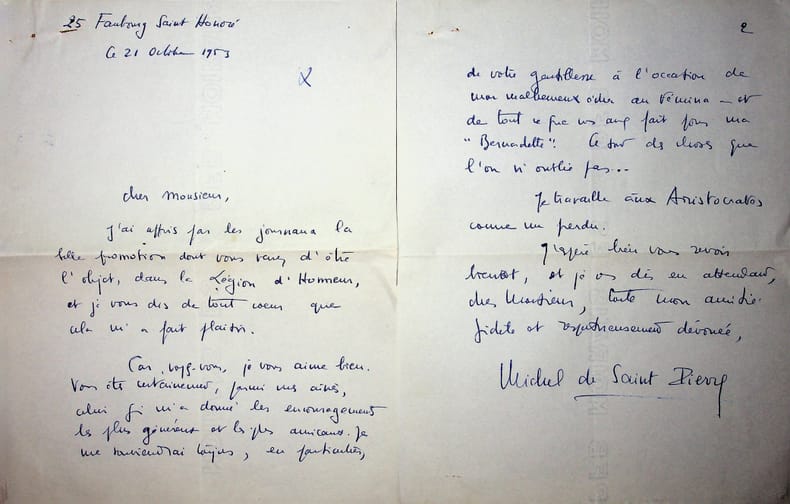 25 Faubourg Saint Honoré
Ce 21 Octobre 1953
X
cher Monsieur,
J'ai appris par les journaux la
belle promotion dont vous venez d'être
l'objet, dans la Légion d'Honneur,
et je vous dis de tout coeur que
cela m'a fait plaisir.
Car, voyez-vous, je vous aime bien.
Vous êtes certainement, parmi mes aînés,
celui qui m'a donné les encouragements
les plus généreux et les plus amicaux. Je
me souviendrai toujours, en particulier,
2
de votre gentillesse à l'occasion de
mon malheureux au Fémina — et
de tout ce que vs avez fait pour ma
"Bernadette". Ce sont des choses que
l'on n'oublie pas...
Je travaille aux Aristocrates
comme un perdu.
J'espère bien vous revoir
bientôt, et je vs dis en attendant,
cher Monsieur, toute mon amitié
fidèle et respectueusement dévouée,
Michel de Saint Pierre